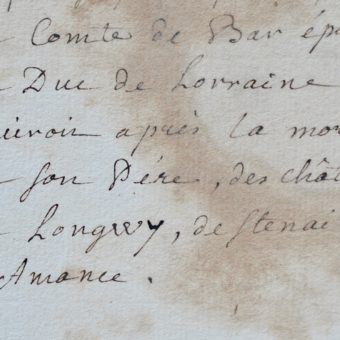 Comte de Bar ép
Duc de Lorraine
uiroir après la mor
son Pére, des chât
Longwy, de Stenai
Amance.